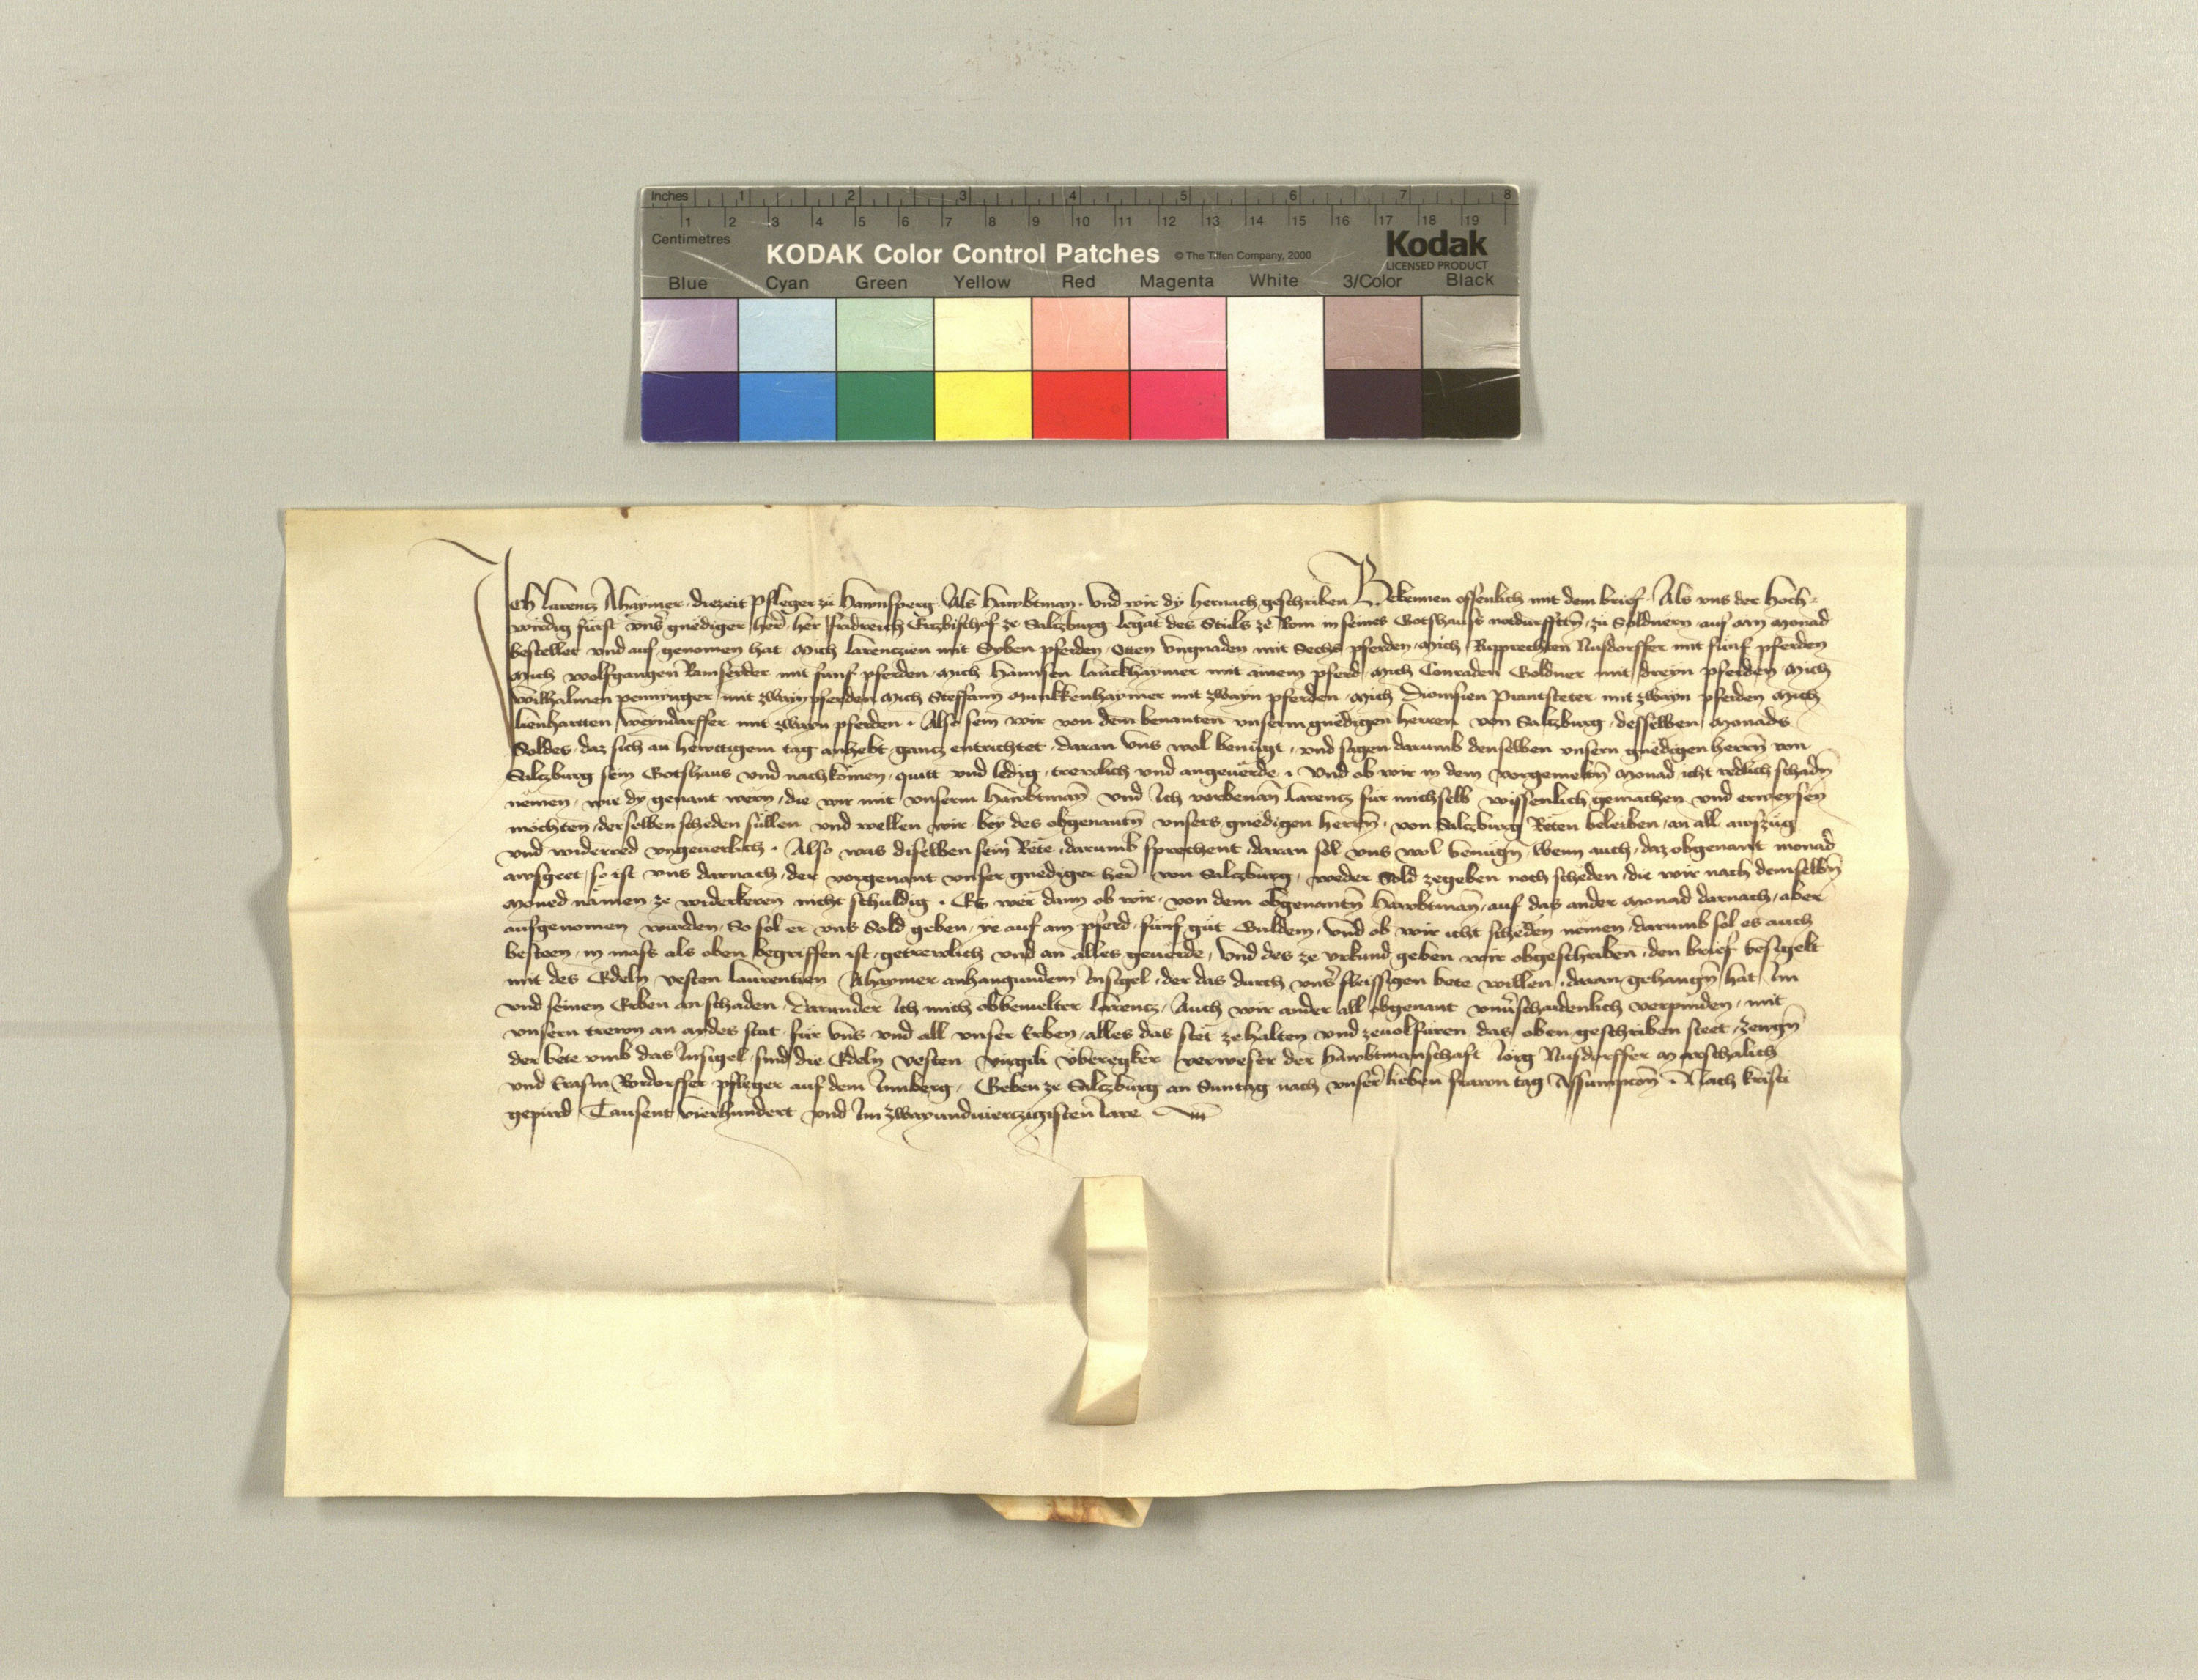 Inches 1 2 3 4 5 6 7 8
1 2 3 4 5 6 7 8 9 10 11 12 13 14 15 16 17 18 19
Centimetres
KODAK Color Control Patches © The Tiffen Company, 2000 Kodak
LICENSED PRODUCT
Blue Cyan Green Yellow Red Magenta White 3/Color Black
Ich larencz Ahaymer diezeit Pfleger zu Hawnsperg Als Hawbtman. Und wir dy hernach geschriben Bekennen offenlich mit dem brief. Als vns der Hoch-
wirdig fürst vnser gnediger herr her fridreich Erzbischof ze Salczburg legat des Stuls ze Rom in seines Gotshauss notdurfften zu Soldnern auf am Monad
bestellet und auf genomen hat, Mich larenczien mit Syben pferden, Otten Ungnaden mit Sechs pferden, Mich Rupprechten Nusdorffer mit fünf pferden
Mich wolfgangen Ramseider mit fünf pferden, Mich Hannsen lanckhaymer mit ainem pferd, Mich Conraden Goldner mit dreyn pferden, Mich
wilhalmen penninger mit zwayn pferden Mich Steffann Munkkenhaymer mit zwayn pferden, Mich Dionisien Prantsteter mit zwayn pferden Mich
lienhartten weyndarffer mit zwayn pferden. Also sein wir von dem benanten vnserm gnedigen herren von Salczburg, desselben Monads
Soldes, daz sich an hewttigem tag anhebt, gancz entrichtet, daran vns wol benügt, vnd sagen darumb denselben vnsern gnedigen herrn von
Salczburg sein Gotshaus vnd nachkömen, quitt vnd ledig, trewlich vnd angeuerde. Und ob wir in dem vorgemelten Monad icht redlich schaden
nemen, wie dy genant wern, die wir mit vnserm Hawbtman vnd Ich vorbenan larencz für michselb wissenlich gemachen vnd erweysen
möchten, derselben scheden süllen vnd wellen wir bey des obgenanten vnsers gnedigen herrn, von Salczburg Reten beleiben, an all awszüg
vnd widerred vngeuerlich. Also was diselben sein Rete, darumb sprechent, daran sol vns wol benügen, Wenn auch, daz obgenant monad
awsgeet, so ist vns darnach, der vorgenant vnser gnediger herr von Salczburg, weder Sold zegeben noch scheden, die wir nach demselben
Moned nämen ze widerkeren nicht schuldig. Es wer dann ob wir, von dem obgenanten Hawbtman, auf das ander Monad darnach, aber
aufgenomen wurden, So sol er vns Sold geben, ye auf am pferd, fünf gut Guldem, vnd ob wir icht scheden nemen, darumb sol es auch
besteen, in mass als oben begriffen ist, getrewlich vnd an alles geuerde, Und des ze vrkund geben wir obgeschriben, den brief besigelt
mit des Edeln vesten laurentien Ahaymer anhangundem Insigel, der das durch vnser fleissigen bete willen, daran gehangen hat Im
vnd seinen Erben an schaden, Darunder Ich mich obbemelter larencz, Auch wir ander all obgenant vnuerschaidenlich verpinden, mit
vnsern trewn an aydes stat für vns vnd all vnser Erben, alles das stet ze halten vnd zeuolfüren das oben geschriben steet, Zewgen
der bete vmb das Insigel sind die Edeln vesten Virgili Uberegker verweser der Hawbtmanschaft Jörg Nusdorffer
vnd Erasm Nordorffer pfleger auf dem Innberg, Geben ze Salczburg an Suntag nach vnser lieben frawn tag Assumpcion. Nach kristi
gepürd Tausent vierhundert vnd Im zwayundvierczigisten Jare